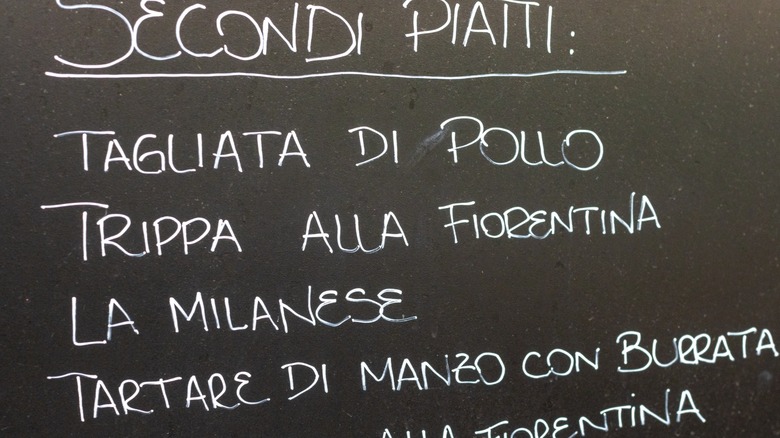 SECONDI PIATTI:
TAGLIATA DI POLLO
TRIPPA ALLA FIORENTINA
LA MILANESE
TARTARE DI MANZO CON BURRATA
ALLA FIORENTINA